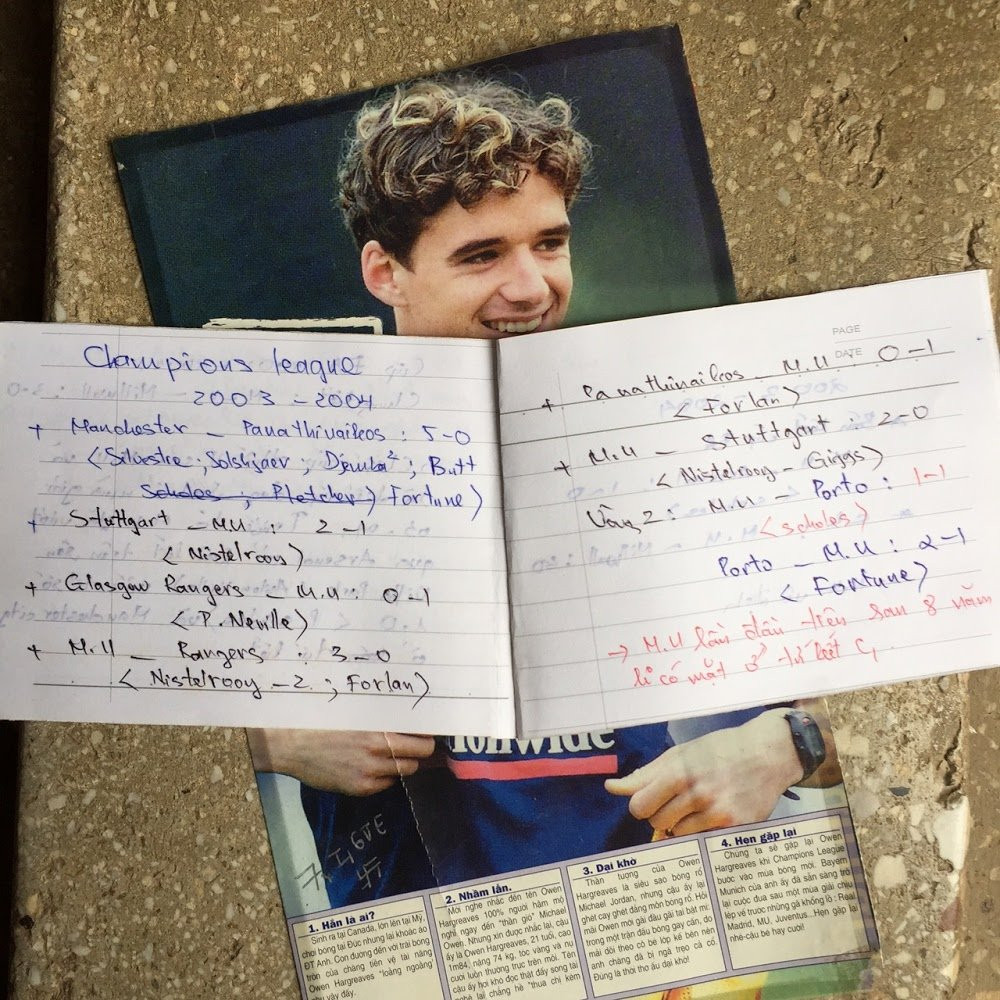 Champions league
2003 - 2004
+ Manchester - Panathinaikos : 5-0
(Silvestre ; Solskjaer ; Djemba² ; Butt
Scholes ; Fletcher) Fortune)
+ Stuttgart - M.U : 2-1
(Nistelrooy)
+ Glasgow Rangers - M.U : 0-1
(P. Neville)
+ M.U - Rangers : 3-0
(Nistelrooy -2 ; Forlan)
PAGE
DATE
+ Panathinaikos - M.U 0-1
(Forlan)
+ M.U - Stuttgart 2-0
(Nistelrooy - Giggs)
Vòng 2 : M.U - Porto : 1-1
(scholes)
Porto - M.U : 2-1
(Fortune)
→ M.U lần đầu tiên sau 8 năm
có mặt ở tứ kết C1
ionwide
1. Hắn là ai?
Sinh ra tại Canada, lớn lên tại Mỹ,
chơi bóng tại Đức nhưng lại khoác áo
ĐT Anh. Con đường đến với trái bóng
tròn của chàng tiền vệ tài năng
Owen Hargreaves "loằng ngoằng
như vậy đấy.
2. Nhầm lẫn.
Mới nghe nhắc đến tên Owen
Hargreaves 100% người hâm mộ
nghĩ ngay đến "thần gió" Michael
Owen. Nhưng xin được nhắc lại, cậu
ấy là Owen Hargreaves, 21 tuổi, cao
1m84, nặng 74 kg, tóc vàng và nụ
cười luôn thường trực trên môi. Tên
cầu ấy hơi khó đọc thật đấy song tài
nghệ lại chẳng hề "thua chị kém
3. Dại khờ
Thần tượng của Owen
Hargreaves là siêu sao bóng rổ
Michael Jordan, nhưng cậu ấy lại
ghét cay ghét đắng môn bóng rổ. Hỏi
mãi Owen mới gãi đầu gãi tai bật mí:
trong một trận đấu bóng gay cấn, do
mải dõi theo cô bé lớp kế bên nên
anh chàng đã bị ngã trẹo cả cổ.
Đúng là thời thơ ấu dại khờ!
4. Hẹn gặp lại
Chúng ta sẽ gặp lại Owen
Hargreaves khi Champions League
bước vào mùa bóng mới. Bayern
Munich của anh ấy đã sẵn sàng trở
lại cuộc đua sau một mùa giải chịu
lép vế trước những gã khổng lồ : Real
Madrid, MU, Juventus...Hẹn gặp lại
nhé-cậu bé hay cười!